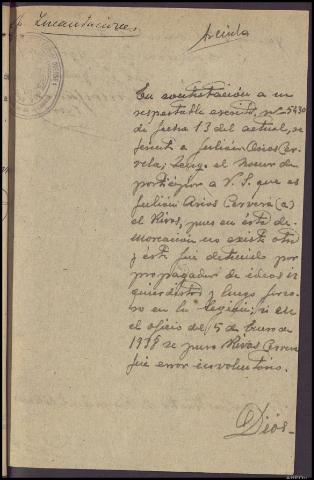 Incautaciones
En contestación a su
respetable escrito, nº 5430
de fecha 13 del actual, re
ferente a Julián Arias Cer
vera; tengo el honor de
participar a V. S. que es
Julián Arias Cervera (a)
el Rivas, pues en ésta de-
marcación no existe otro
y este fué detenido por
propagador de ideas iz
quierdistas y luego
en la Legión; si en
el oficio del 5 de Enero de
1938 se puso Rivas Cervera
fué error involuntario.
Dios-